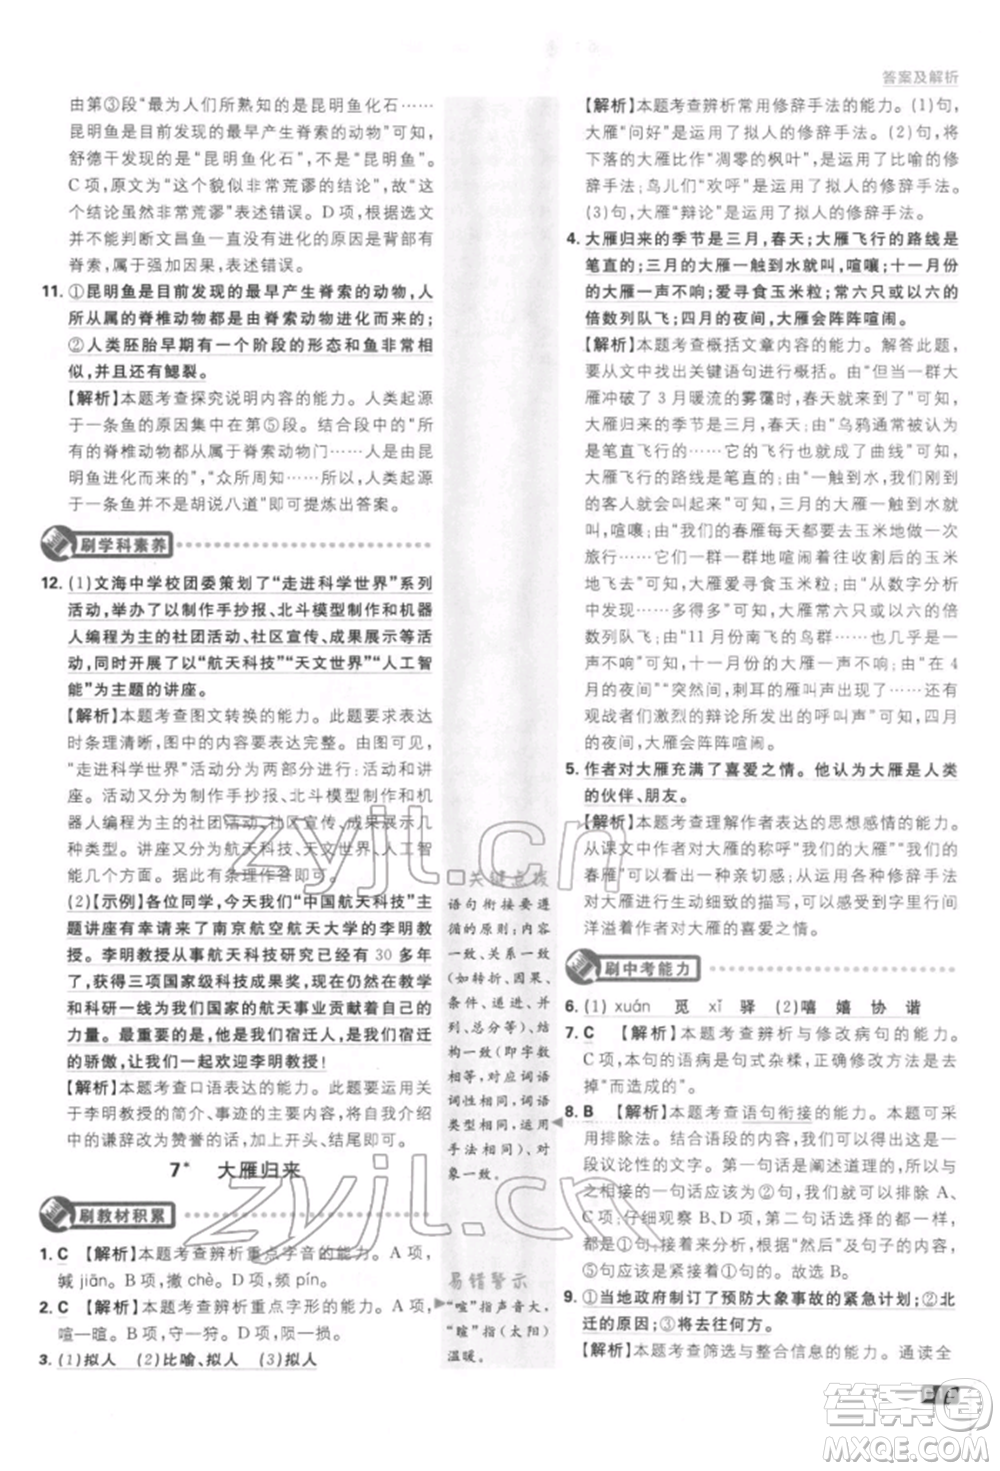 答案及解析
由第③段“最为人们所熟知的是昆明鱼化石……
昆明鱼是目前发现的最早产生脊索的动物”可知，
舒德干发现的是“昆明鱼化石”，不是“昆明鱼”。
C项，原文为“这个貌似非常荒谬的结论”，故“这个
结论虽然非常荒谬”表述错误。D项，根据选文
并不能判断文昌鱼一直没有进化的原因是背部有
脊索，属于强加因果，表述错误。
11. ①昆明鱼是目前发现的最早产生脊索的动物，人
所从属的脊椎动物就是由脊索动物进化而来的；
②人类胚胎早期有一个阶段的形态和鱼非常相
似，并且还有鳃裂。
【解析】本题考查探究说明内容的能力。人类起源
于一条鱼的原因集中在第⑤段。结合段中的“人
所从属……就是由脊索动物……”“人类胚胎……
鳃裂……”，“众所周知……所以……，人类起源
于一条鱼并不是胡说八道”即可提炼出答案。
刷学科素养
12. (1)文海中学校团委策划了“走进科学世界”系列
活动，举办了以制作手抄报、北斗模型制作和机器
人编程为主的社团活动、社区宣传、成果展示等活
动，同时开展了以“航天科技”“天文世界”“人工智
能”为主题的讲座。
【解析】本题考查图文转换的能力。此题要求表达
时条理清晰，图中的内容要表达完整。由图可见，
“走进科学世界”系列活动分为两部分进行：活动和讲座。
活动又分为以制作手抄报、北斗模型制作、机器人
编程为主的社团活动、社区宣传、成果展示等
几种类型。讲座分为航天科技、天文世界、人工智
能几个方面。据此有条理作答即可。
(2)【示例】各位同学，今天我们“中国航天科技”主
题讲座有幸请到了南京航空航天大学的李明教
授。李明教授从事航天科技研究已经有 30 多年
了，获得三项国家级科技成果奖，现在仍然在教学
和科研一线为我们国家的航天事业贡献着自己的
力量。最重要的是，他是我们宿迁人，是我们宿迁
的骄傲，让我们一起欢迎李明教授！
【解析】本题考查口语表达的能力。要运用图片关
于李明教授的简介、事迹的内容，并将自我介绍
中的谦辞改为赞誉的话语，加上开头、结尾即可。
7* 大雁归来
刷教材积累
1. C 【解析】本题考查辨析重点字音的能力。A项，
缄 jiān。B项，撤 chè。D项，频 pín。
2. C 【解析】本题考查辨析重点字形的能力。A项，
喧—暄。B项，守—狩。D项，陨—损。
3. (1)拟人 (2)比喻、拟人 (3)拟人
关键点拨
语句衔接要遵
循的原则：内容
一致，语脉一致
（如转折、因果、
条件、递进、并
列、总分等），结
构一致（即句式
一致，对应词语
词性相同，词语
类型相同，运用
手法相同），对
象一致。
易错警示
“喧”指声音大，
“暄”指（太阳）
温暖。
【解析】本题考查辨析常用修辞手法的能力。(1)句，
大雁“问好”是运用了拟人的修辞手法。(2)句，将
下落的大雁比作“凋零的枫叶”，是运用了比喻的修
辞手法；鸟儿们“欢呼”是运用了拟人的修辞手法。
(3)句，大雁“辩论”也运用了拟人的修辞手法。
4. 大雁归来的季节是三月，春天；大雁飞行的路线是
笔直的；三月的大雁一触到水就叫，喧嚷；十一月份
的大雁一声不响；爱寻食玉米粒；常六只或以六的
倍数列队飞；四月的夜间，大雁会阵阵喧闹。
【解析】本题考查概括文章内容的能力。解答此题，
要从文中找出关键语句进行概括。由“当一群大
雁冲破了 3 月暖流的雾霭时，春天就来到了”可知，
大雁归来的季节是三月，春天；由“乌鸦通常被认为是
笔直飞行的……它的飞行也就成了曲线”可知，
大雁飞行的路线是笔直的；由“一触到水，我们刚到
的客人就会叫起来”可知，三月的大雁一触到水就
叫，喧嚷；由“我们的春雁每天都要去玉米地做一次
旅行……它们一群一群地喧闹着往收割后的玉米
地飞去”可知，大雁爱寻食玉米粒；由“从数字分析
中发现……”可知，大雁常六只或以六的倍
数列队飞；由“11 月份南飞的鸟群……一声不响”
可知，十一月份的大雁一声不响；由“……在 4
月的夜间……”“突然间，刺耳的雁叫声出现……有
观战者们激烈的辩论所发出的呼叫声”可知，四月
的夜间，大雁阵阵喧闹。
5. 作者对大雁充满了喜爱之情。他认为大雁是人类
的伙伴、朋友。
【解析】本题考查理解作者表达的思想感情的能力。
从课文中作者对大雁的称呼“我们的大雁”“我们的
春雁”可见作者的一种亲切感；多处用拟人修辞手法
对大雁进行生动细致的描写，可感受到字里行间
洋溢着作者对大雁的喜爱之情。
刷中考能力
6. (1)xuán 觅 xǐ 驿 (2)嘻 嬉 协 谐
7. C 【解析】本题考查辨析与修改病句的能力。
C项，本句的语病是句式杂糅，正确修改方法是去
掉“而造成的”。
8. B 【解析】本题考查语句衔接的能力。本题可采
用排除法。结合语段的内容，重点关注横线后的
文字。由于横线后的第一句话是阐述道理的，所以与
之相接的一句话应为②，由此可以排除A项和
C项；仔细观察B、D两项，第二句话均为④，不
同的是第三句话，根据“然后”及句子的合理性，
⑤句应该在④句之后。故选B。
9. ①当地政府制订了预防大象事故的紧急计划；②北
迁的原因；③将去往何方。
【解析】本题考查筛选与整合信息的能力。通读全
zyjl.cn
zyjl.cn
答案圈
MXQE.COM